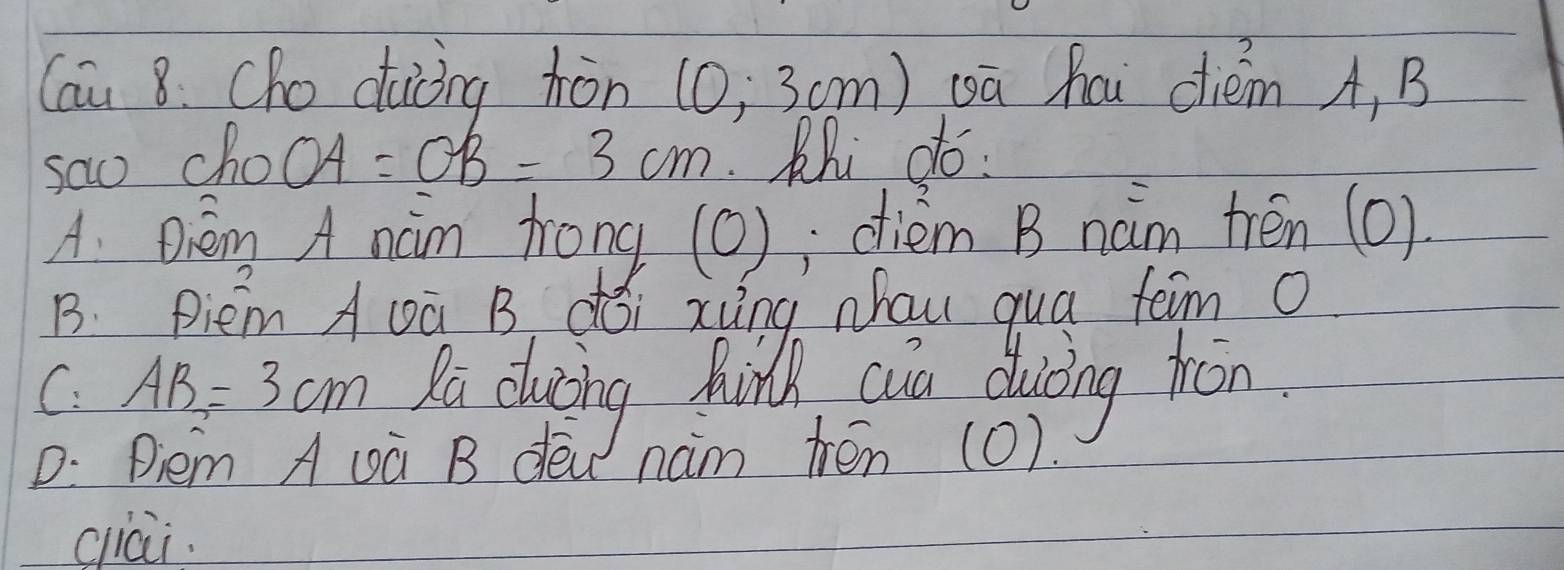 Câu 8: Cho đường tròn (O; 3cm) và hai điểm A, B
sao cho OA = OB = 3 cm. Khi đó:
A. Điểm A nằm trong (O); điểm B nằm trên (O).
B. Điểm A và B đối xứng nhau qua tâm O
C: AB = 3 cm là đường kính của đường tròn.
D: Điểm A và B đều nằm trên (O).
giải: